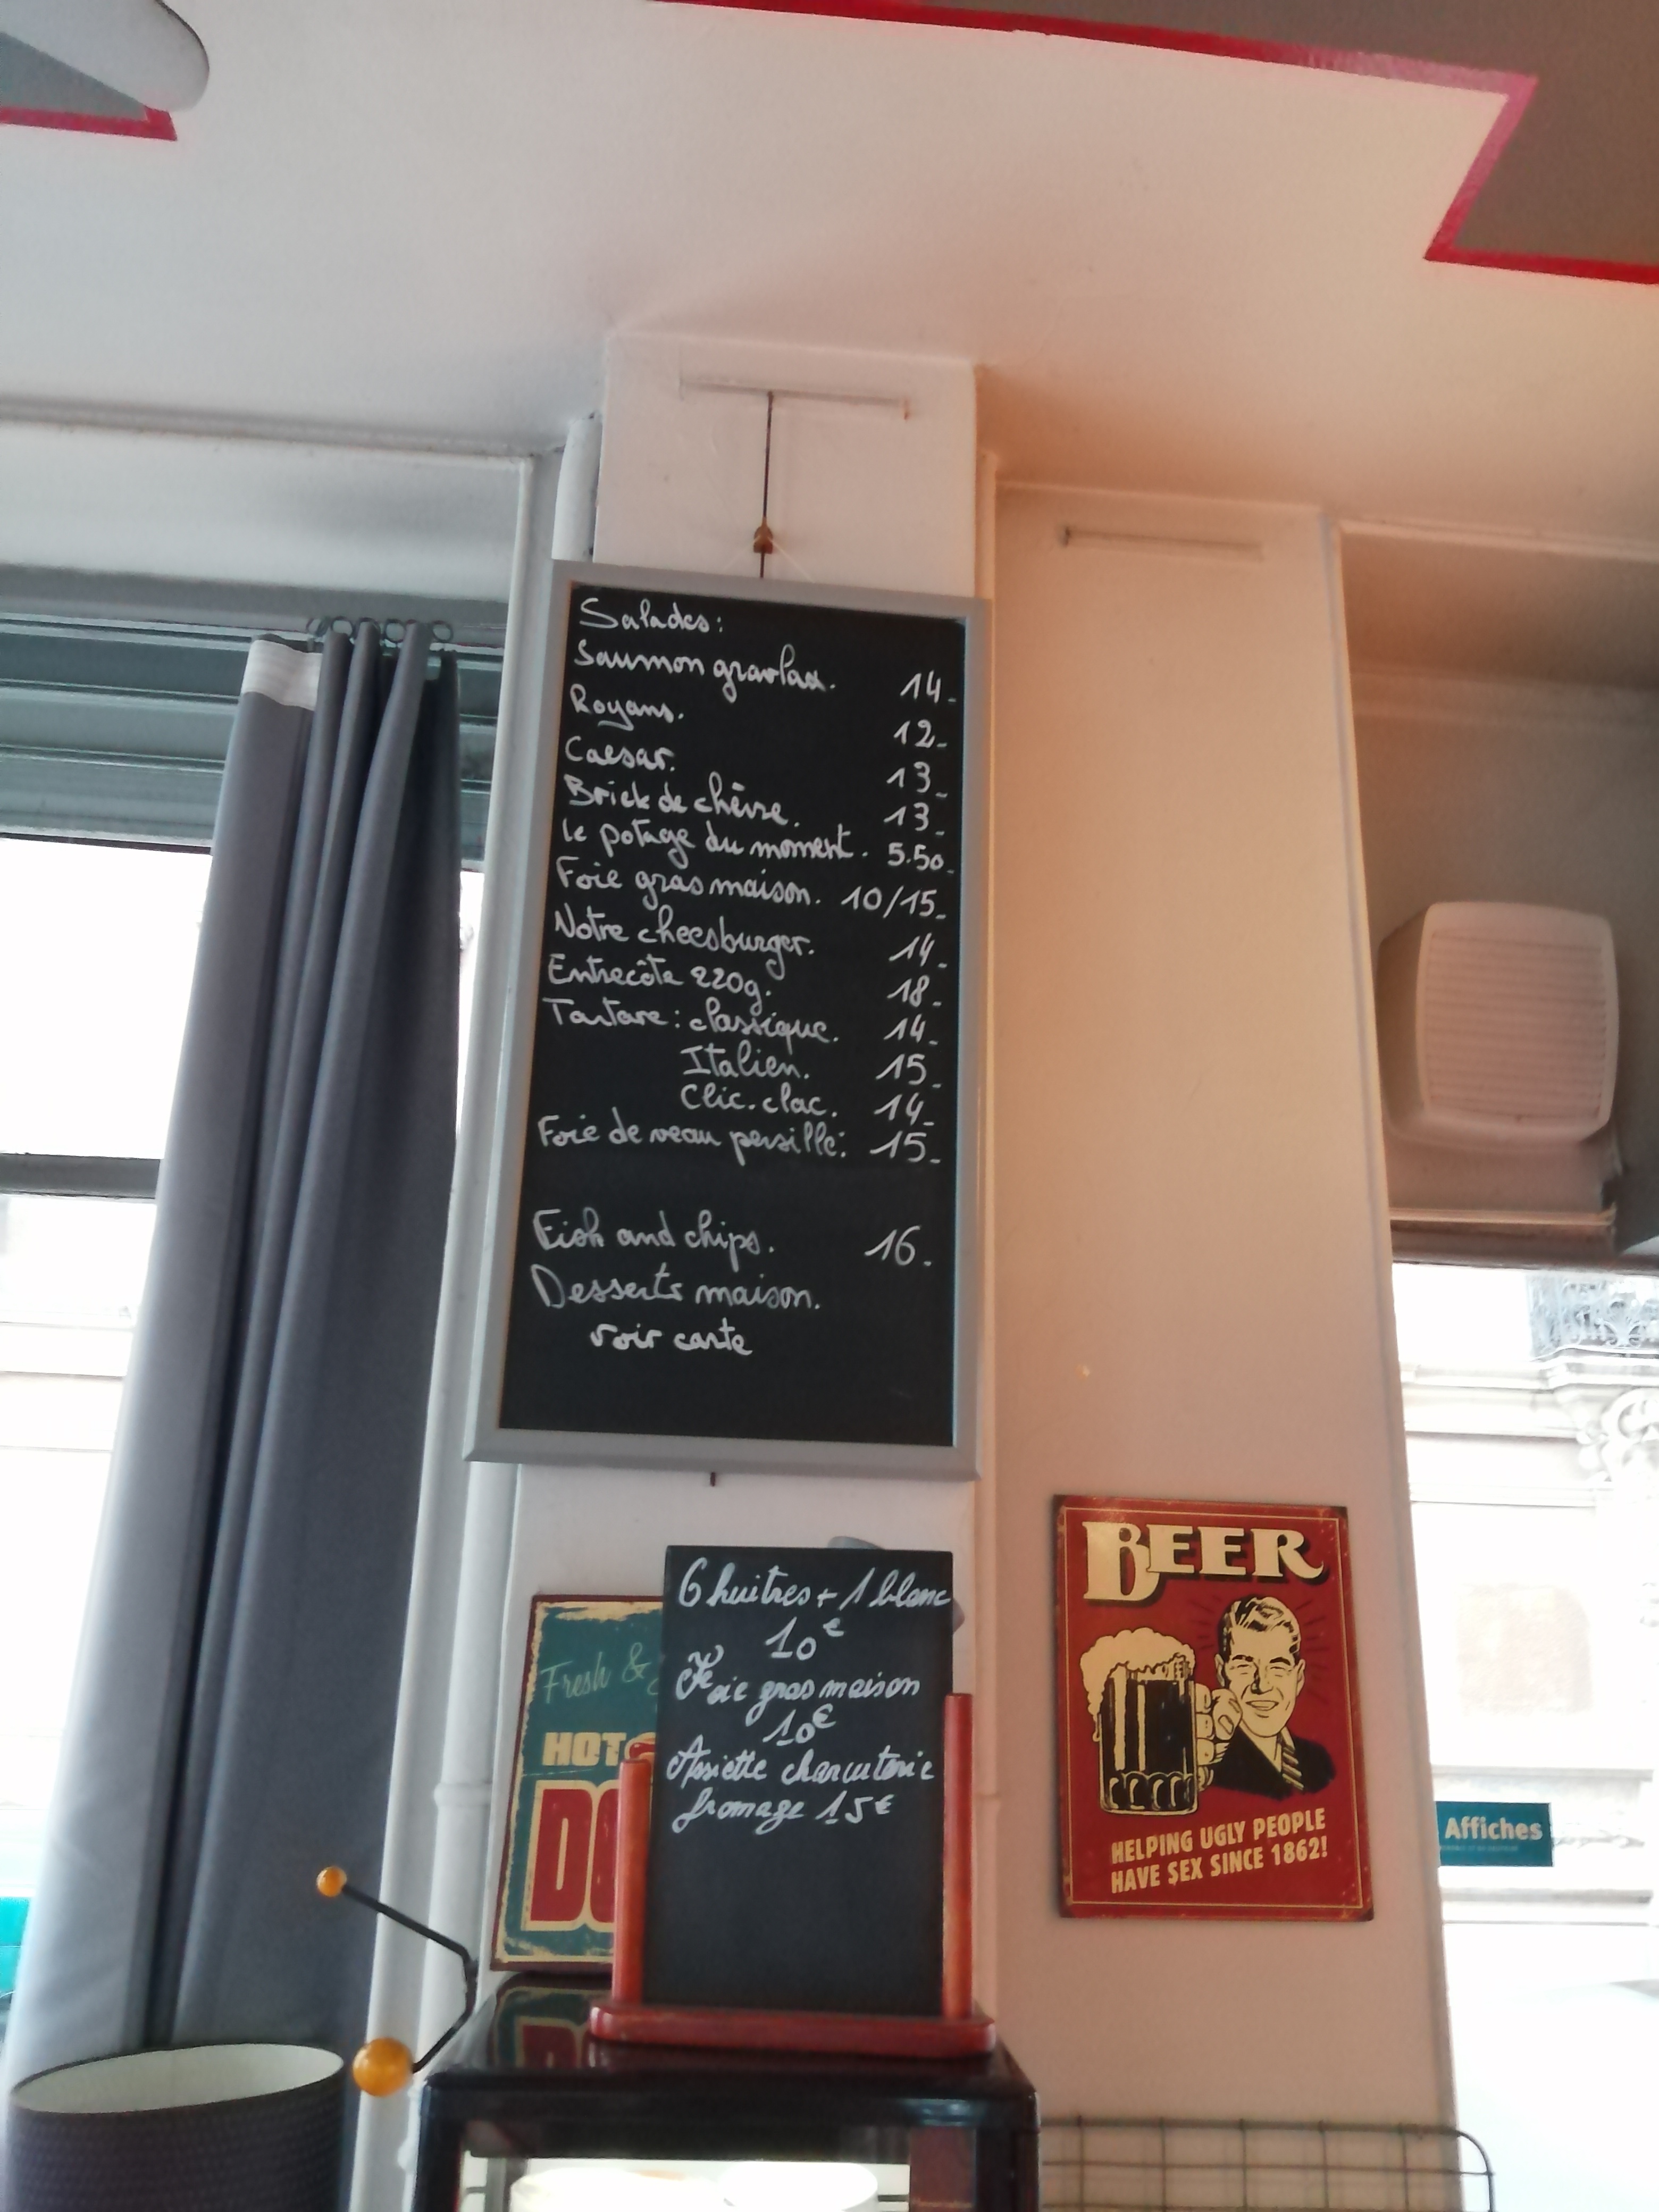 Salades:
Saumon gravlax. 14.-
Royans. 12.-
Caesar. 13.-
Brick de chèvre. 13.-
Le potage du moment. 5.50.-
Foie gras maison. 10/15.-
Notre cheesburger. 14.-
Entrecôte 220g. 18.-
Tartare: classique. 14.-
Italien. 15.-
Clic.clac. 14.-
Foie de veau persillé: 15.-
Fish and chips. 16.-
Desserts maison.
voir carte
6 huitres + 1 blanc
10€
Foie gras maison
10€
Assiette charcuterie
fromage 15€
Fresh &
HOT
DO
BEER
HELPING UGLY PEOPLE
HAVE $EX SINCE 1862!
Affiches